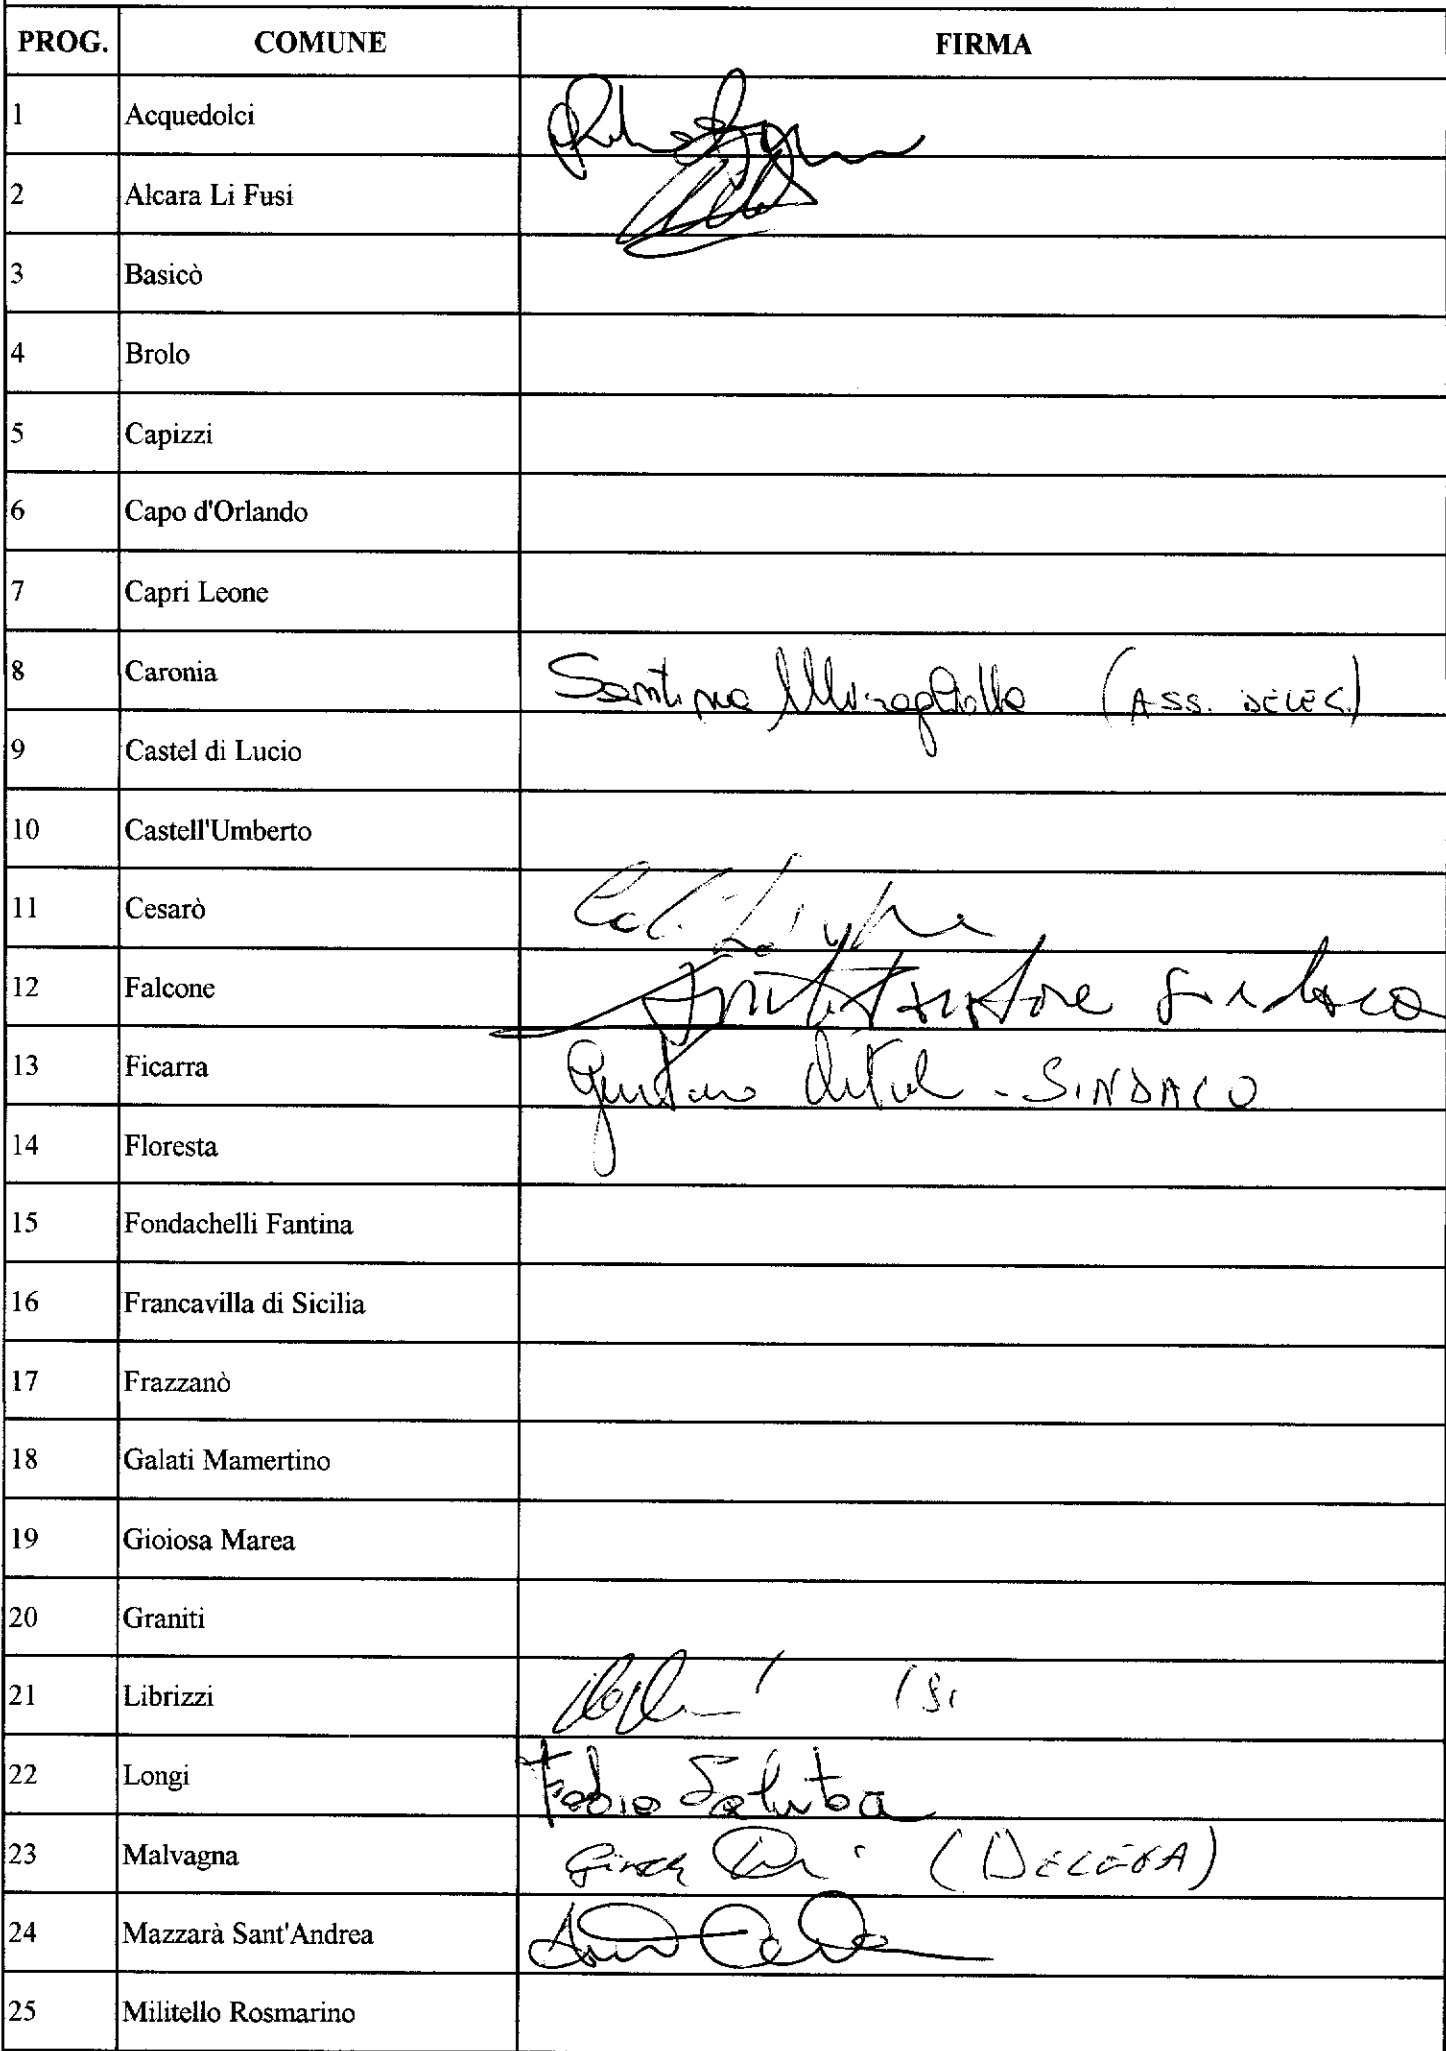 PROG. COMUNE FIRMA
1 Acquedolci
2 Alcara Li Fusi
3 Basicò
4 Brolo
5 Capizzi
6 Capo d'Orlando
7 Capri Leone
8 Caronia (ASS. DELEG.)
9 Castel di Lucio
10 Castell'Umberto
11 Cesarò
12 Falcone Sindaco
13 Ficarra - SINDACO
14 Floresta
15 Fondachelli Fantina
16 Francavilla di Sicilia
17 Frazzanò
18 Galati Mamertino
19 Gioiosa Marea
20 Graniti
21 Librizzi
22 Longi Fabio
23 Malvagna (DELEGA)
24 Mazzarà Sant'Andrea
25 Militello Rosmarino